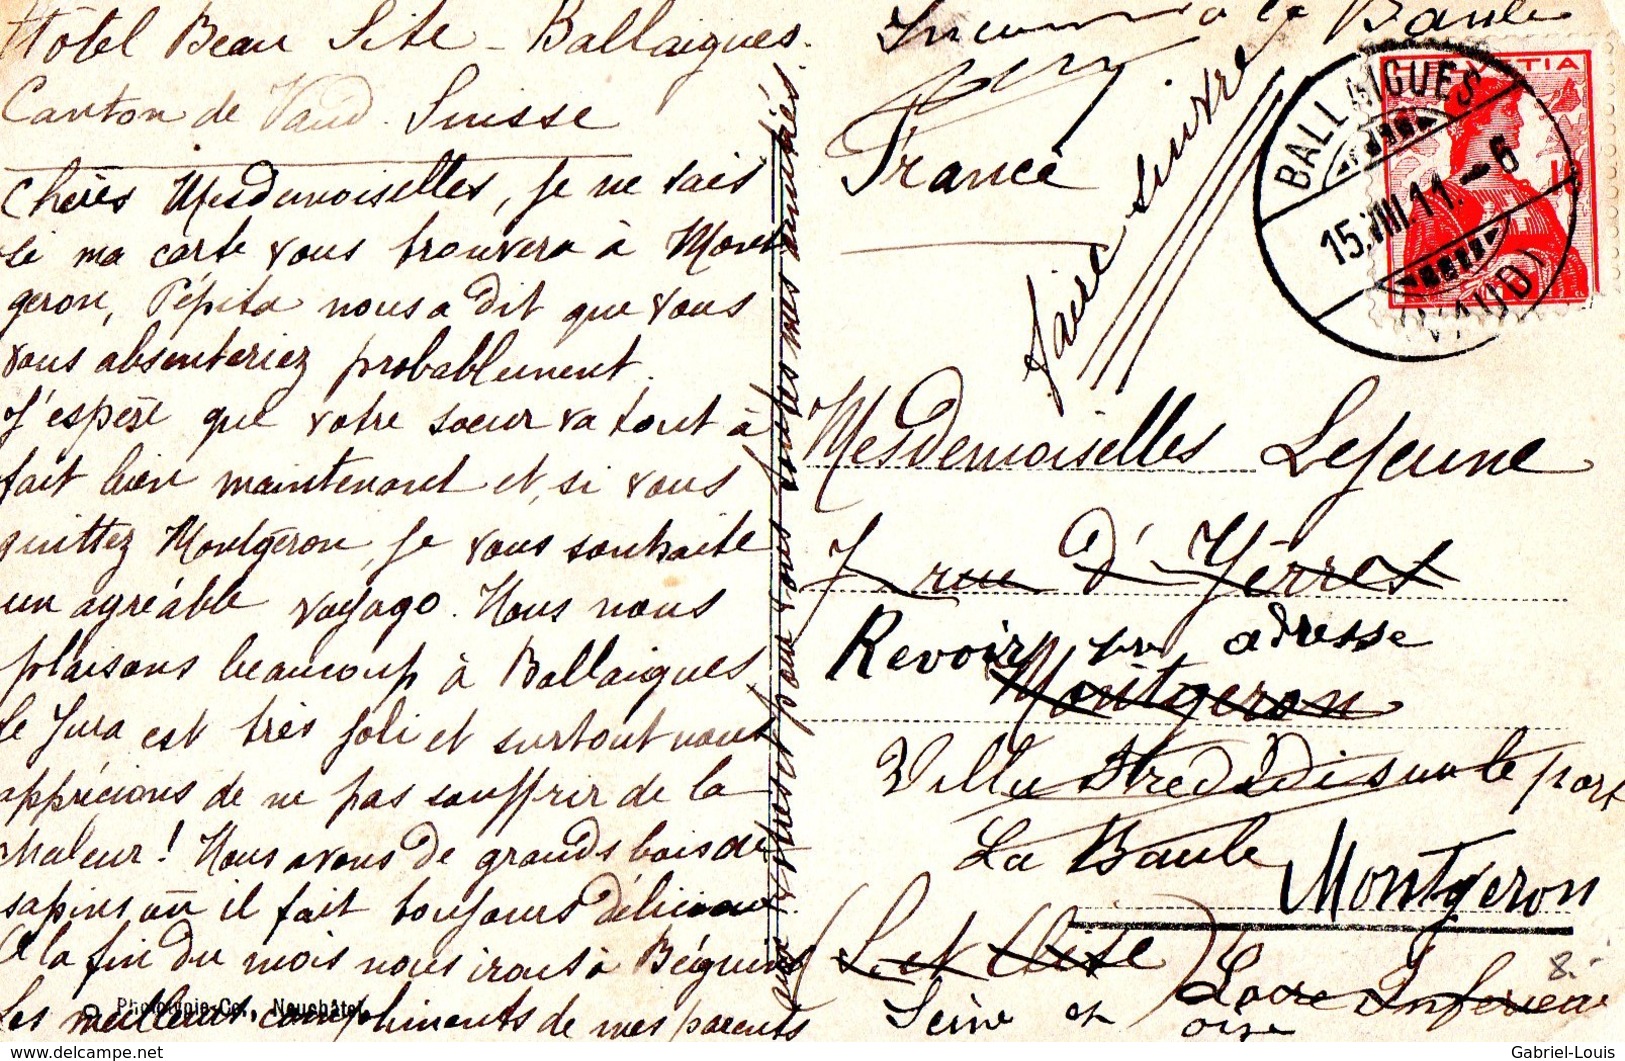 Hôtel Beau Site - Ballaigues.
Canton de Vaud. Suisse
Chères Mesdemoiselles, je ne sais
si ma carte vous trouvera à Mont
geron, Pépita nous a dit que vous
vous absenteriez probablement.
J'espère que votre soeur va tout à
fait bien maintenant et, si vous
quittez Montgeron, je vous souhaite
un agréable voyage. Nous nous
plaisons beaucoup à Ballaigues,
le Jura est très joli et surtout nous
apprécions de ne pas souffrir de la
chaleur! Nous avons de grands bois de
sapins où il fait toujours délicieux.
A la fin du mois nous irons à Béguins
Les meilleurs compliments de mes parents
pour vous toutes mes amitiés.
Phototypie Co., Neuchâtel
Inconnu à la Baule
France
faire suivre
HELVETIA
10
BALLAIGUES
15.VIII.11.-6
(VAUD)
Mesdemoiselles Lejeune
7 rue d'Yerres
Revoir adresse
Montgeron
Villa
La Baule
Montgeron
Seine et Oise
Loire Inférieure
8.-
Gabriel-Louis